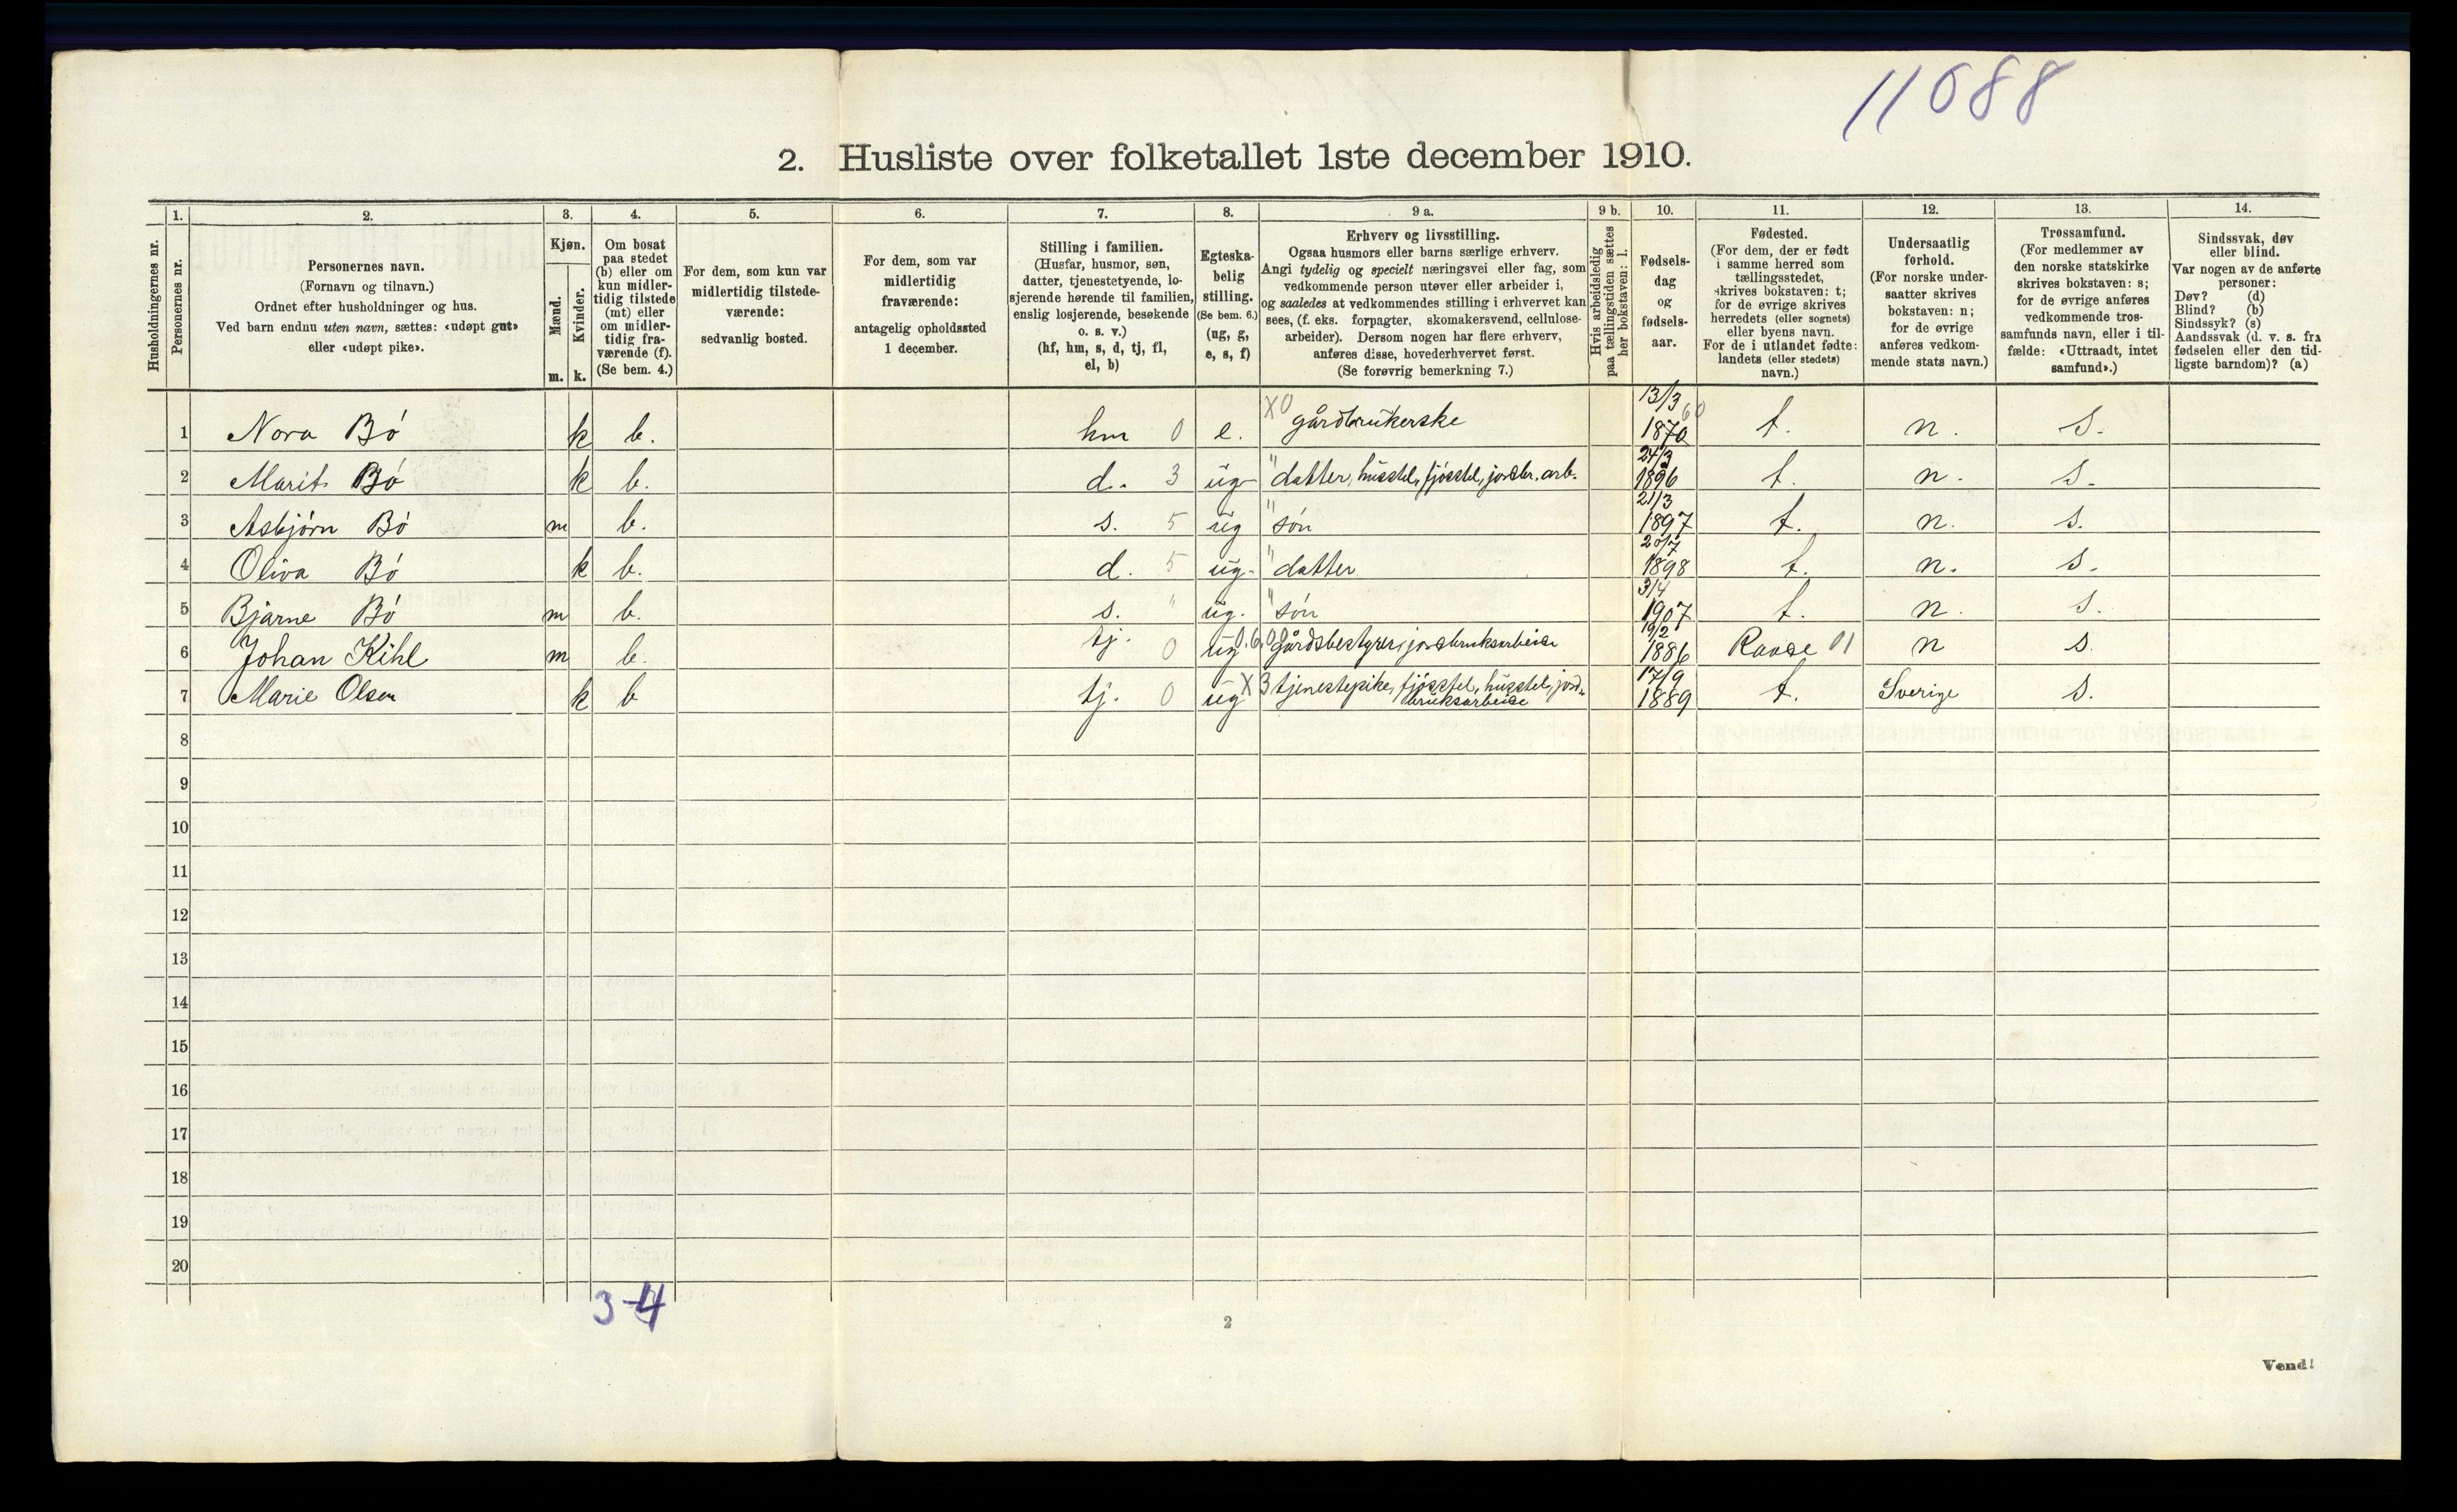 11088
2. Husliste over folketallet 1ste december 1910.
Husholdningernes nr.
1.
Personernes nr.
2.
Personernes navn.
(Fornavn og tilnavn.)
Ordnet efter husholdninger og hus.
Ved barn endnu uten navn, sættes: «udøpt gut»
eller «udøpt pike».
3.
Kjøn.
Mænd.
Kvinder.
m. k.
4.
Om bosat
paa stedet
(b) eller om
kun midler-
tidig tilstede
(mt) eller
om midler-
tidig fra-
værende (f).
(Se bem. 4.)
5.
For dem, som kun var
midlertidig tilstede-
værende:
sedvanlig bosted.
6.
For dem, som var
midlertidig
fraværende:
antagelig opholdssted
1 december.
7.
Stilling i familien.
(Husfar, husmor, søn,
datter, tjenestetyende, lo-
sjerende hørende til familien,
enslig losjerende, besøkende
o. s. v.)
(hf, hm, s, d, tj, fl,
el, b)
8.
Egteska-
belig
stilling.
(Se bem. 6.)
(ug, g,
e, s, f)
9 a.
Erhverv og livsstilling.
Ogsaa husmors eller barns særlige erhverv.
Angi tydelig og specielt næringsvei eller fag, som
vedkommende person utøver eller arbeider i,
og saaledes at vedkommendes stilling i erhvervet kan
sees, (f. eks. forpagter, skomakersvend, cellulose-
arbeider). Dersom nogen har flere erhverv,
anføres disse, hovederhvervet først.
(Se forøvrig bemerkning 7.)
9 b.
Hvis arbeidsledig
paa tællingstiden sættes
her bokstaven: l.
10.
Fødsels-
dag
og
fødsels-
aar.
11.
Fødested.
(For dem, der er født
i samme herred som
tællingsstedet,
skrives bokstaven: t;
for de øvrige skrives
herredets (eller sognets)
eller byens navn.
For de i utlandet fødte:
landets (eller stedets)
navn.)
12.
Undersaatlig
forhold.
(For norske under-
saatter skrives
bokstaven: n;
for de øvrige
anføres vedkom-
mende stats navn.)
13.
Trossamfund.
(For medlemmer av
den norske statskirke
skrives bokstaven: s;
for de øvrige anføres
vedkommende tros-
samfunds navn, eller i til-
fælde: «Uttraadt, intet
samfund».)
14.
Sindssvak, døv
eller blind.
Var nogen av de anførte
personer:
Døv? (d)
Blind? (b)
Sindssyk? (s)
Aandssvak (d. v. s. fra
fødselen eller den tid-
ligste barndom)? (a)
1 Nora Bó k b. hm 0 e. X0 gårdbrukerske 13/3 1870 60 t. n. s.
2 Marit Bó k b. d. 3 ug " datter, husstel, fjósstel, jordbr. arb. 24/3 1896 t. n. s.
3 Asbjórn Bó m b. s. 5 ug " són 21/3 1897 t. n. s.
4 Oliva Bó k b. d. 5 ug. " datter 20/7 1898 t. n. s.
5 Bjarne Bó m b. s. " ug. " són 3/4 1907 t. n. s.
6 Johan Kihl m b. tj. 0 ug gårdsbestyrer, jordbruksarbeide 19/2 1886 Raade 01 n s.
7 Marie Olsen k b tj. 0 ug X3 tjenestepike, fjósstel, husstel, jord-
bruksarbeide 17/9 1889 t. Sverige s.
8
9
10
11
12
13
14
15
16
17
18
19
20
3-4
2
Vend!